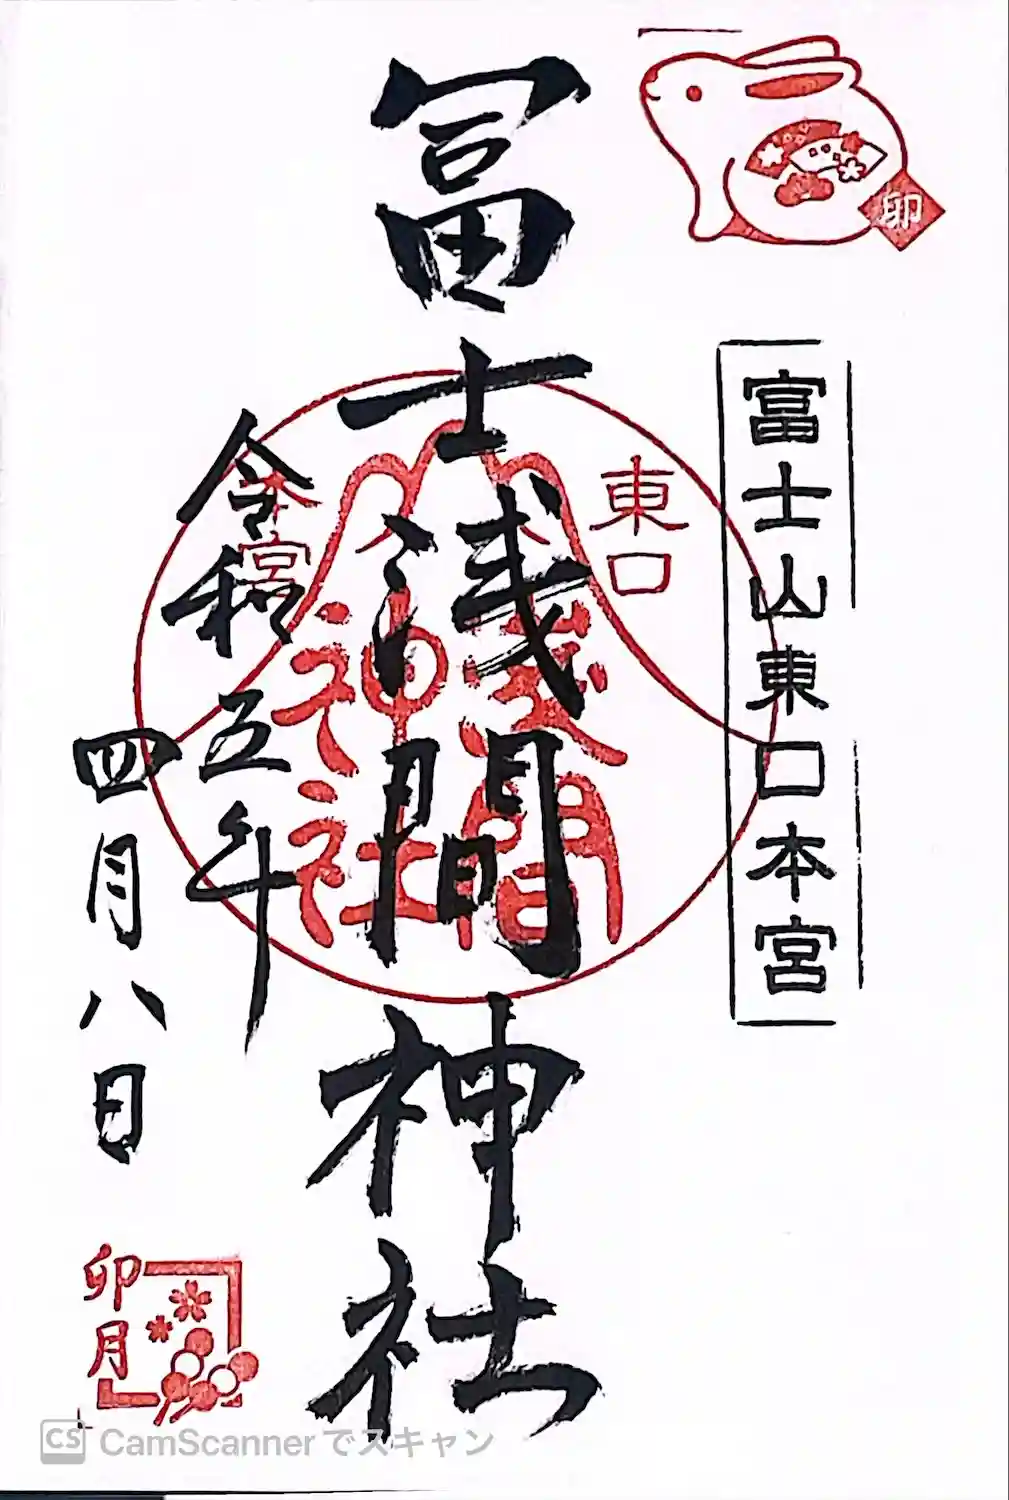 卯
富士山東口本宮
冨士浅間神社
東口
本宮
浅間
神社
令和五年
四月八日
卯月
CS CamScannerでスキャン